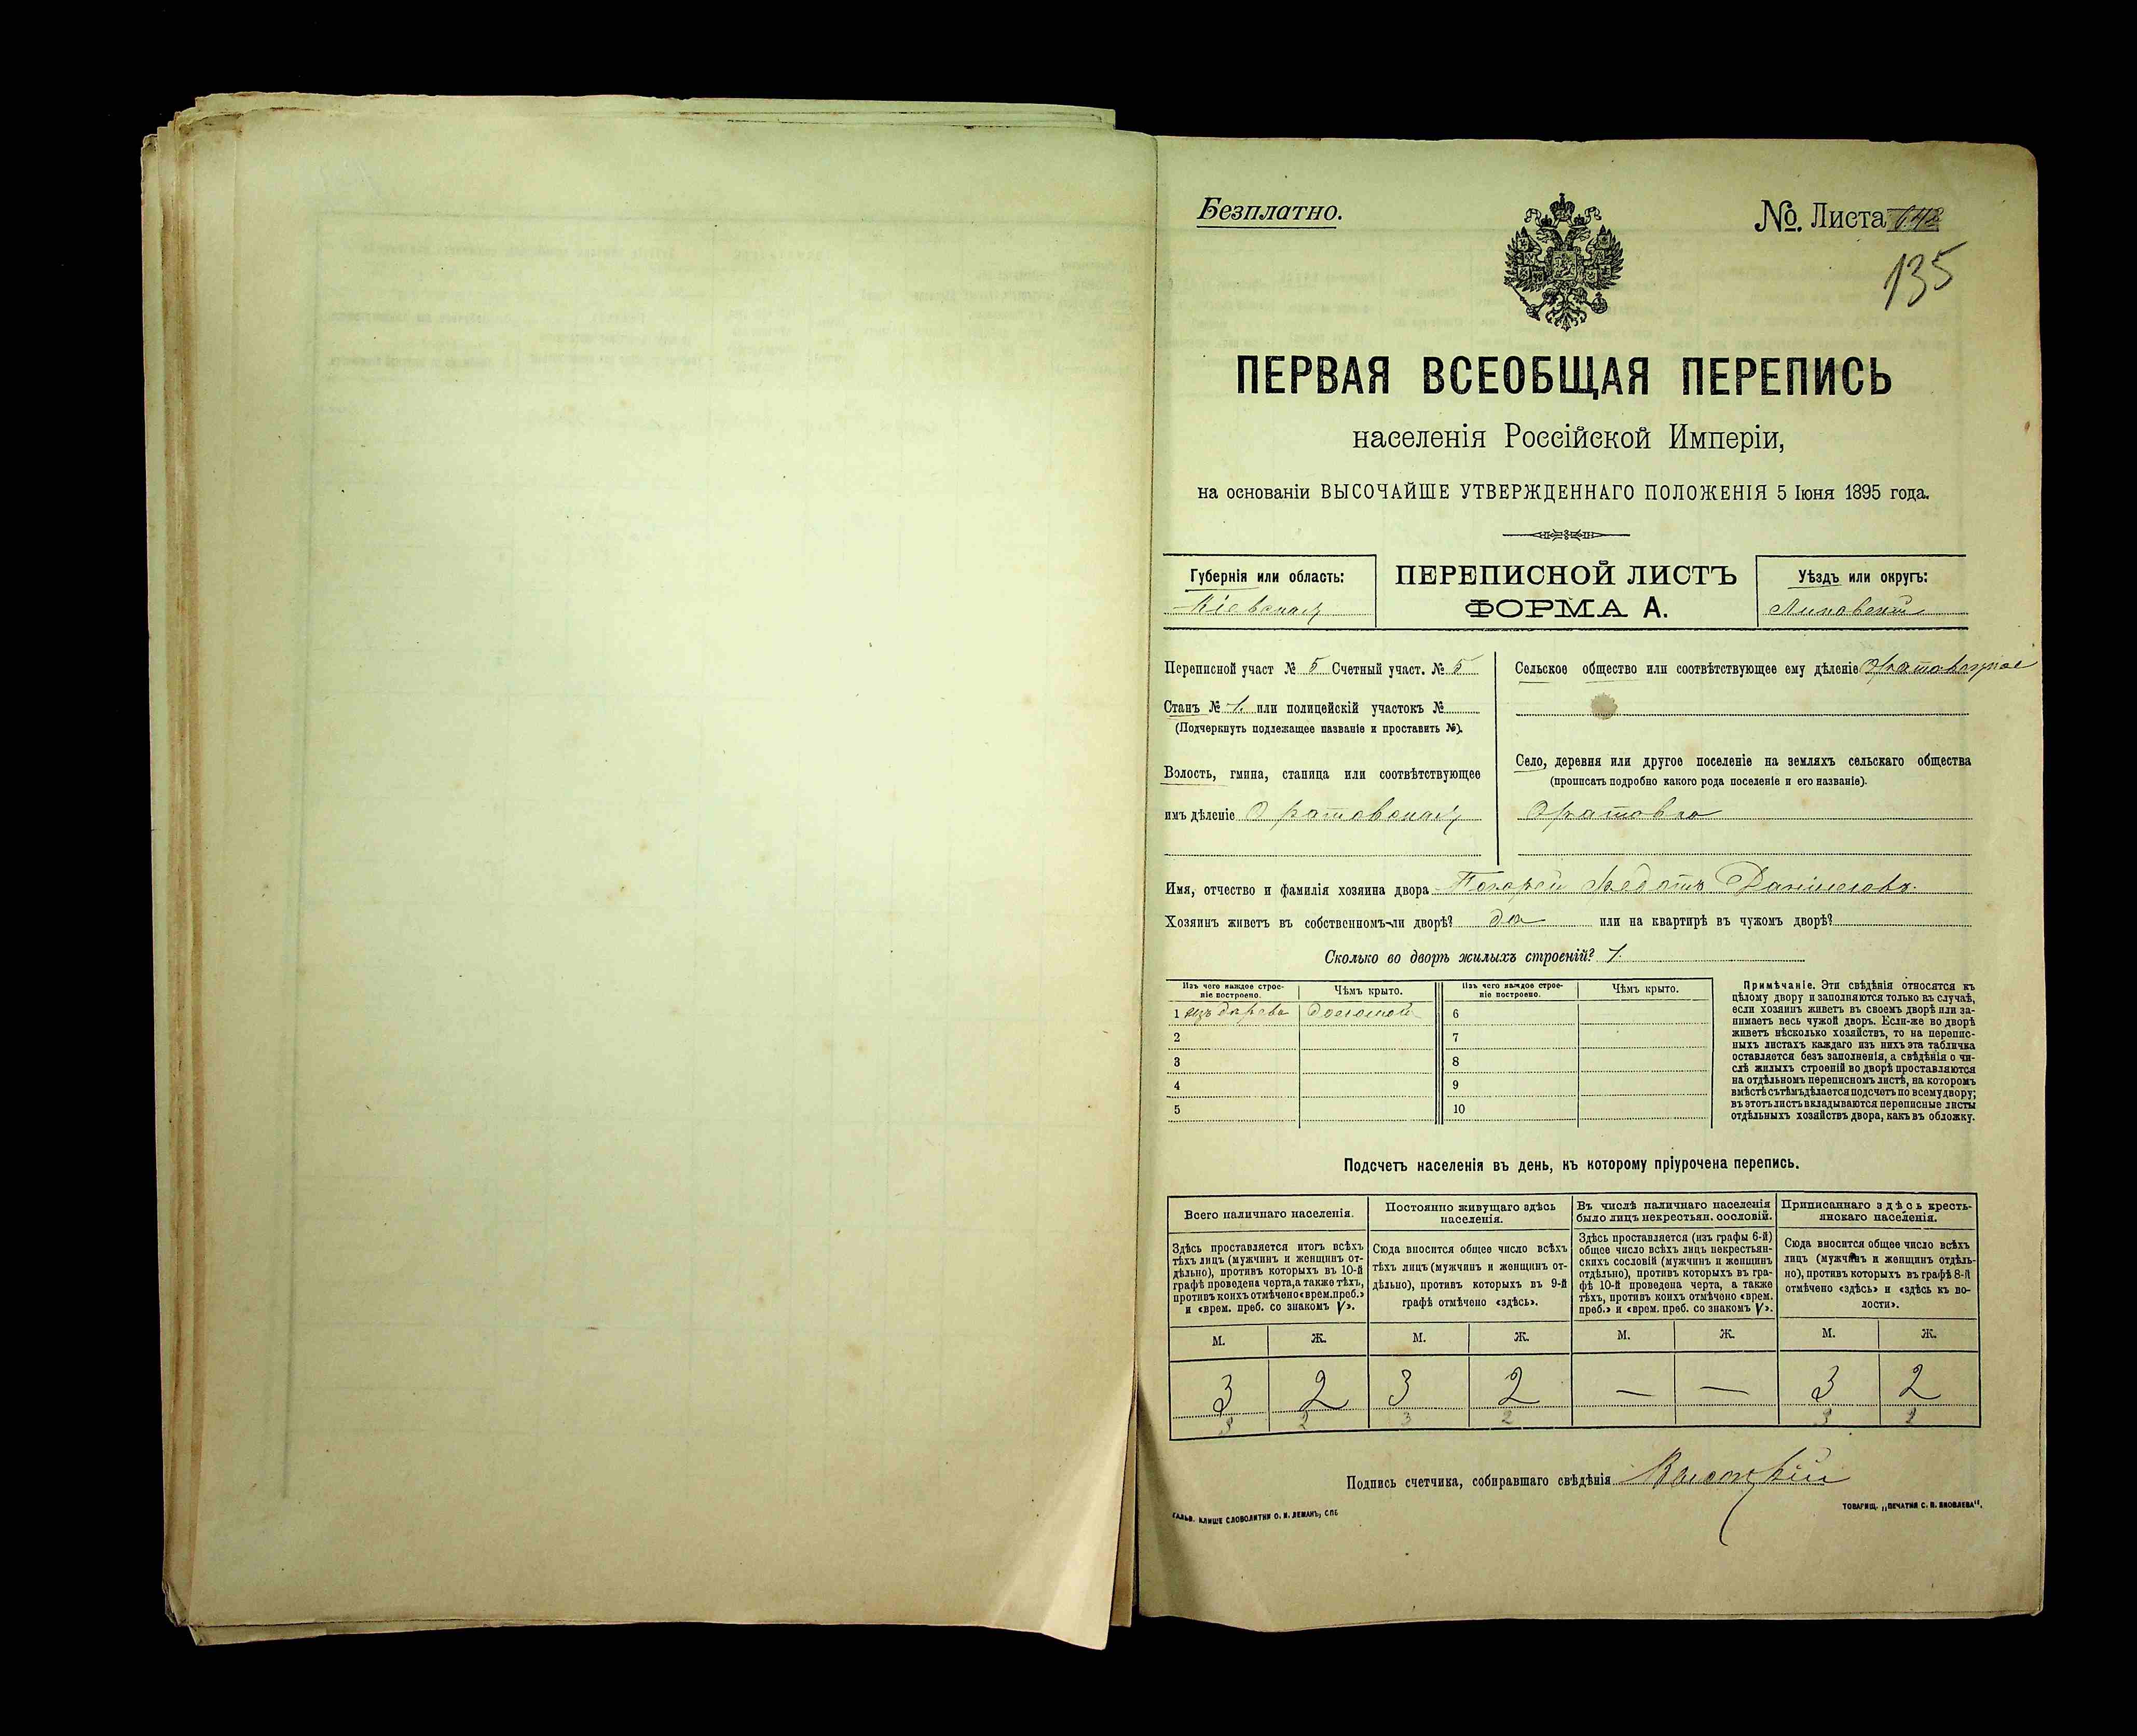 Безплатно.
№. Листа
135
ПЕРВАЯ ВСЕОБЩАЯ ПЕРЕПИСЬ
населенія Россійской Имперіи,
на основаніи ВЫСОЧАЙШЕ УТВЕРЖДЕННАГО ПОЛОЖЕНІЯ 5 Іюня 1895 года.
Губернія или область:
Кіевская
ПЕРЕПИСНОЙ ЛИСТЪ
ФОРМА А.
Уѣздъ или округъ:
Липовецкій
Переписной участ № 5 Счетный участ. № 5
Станъ № 1. или полицейскій участокъ №
(Подчеркнуть подлежащее названіе и проставить №).
Волость, гмина, станица или соотвѣтствующее
имъ дѣленіе Оратовская
Сельское общество или соотвѣтствующее ему дѣленіе Оратовское
Село, деревня или другое поселеніе на земляхъ сельскаго общества
(прописать подробно какого рода поселеніе и его названіе).
Оратовъ
Имя, отчество и фамилія хозяина двора Федотъ
Хозяинъ живетъ въ собственномъ-ли дворѣ? да или на квартирѣ въ чужомъ дворѣ?
Сколько во дворѣ жилыхъ строеній? 1.
Изъ чего каждое строе-
ніе построено.
Чѣмъ крыто.
Изъ чего каждое строе-
ніе построено.
Чѣмъ крыто.
1 изъ дерева соломой
2
3
4
5
6
7
8
9
10
Примѣчаніе. Эти свѣдѣнія относятся къ
цѣлому двору и заполняются только въ случаѣ,
если хозяинъ живетъ въ своемъ дворѣ или за-
нимаетъ весь чужой дворъ. Если-же во дворѣ
живетъ нѣсколько хозяйствъ, то на перепис-
ныхъ листахъ каждаго изъ нихъ эта табличка
оставляется безъ заполненія, а свѣдѣнія о чи-
слѣ жилыхъ строеній во дворѣ проставляются
на отдѣльномъ переписномъ листѣ, на которомъ
вмѣстѣ съ тѣмъ дѣлается подсчетъ по всему двору;
въ этотъ листъ вкладываются переписные листы
отдѣльныхъ хозяйствъ двора, какъ въ обложку.
Подсчетъ населенія въ день, къ которому пріурочена перепись.
Всего наличнаго населенія.
Здѣсь проставляется итогъ всѣхъ
тѣхъ лицъ (мужчинъ и женщинъ от-
дѣльно), противъ которыхъ въ 10-й
графѣ проведена черта, а также тѣхъ,
противъ коихъ отмѣчено «врем. преб.»
и «врем. преб. со знакомъ V».
Постоянно живущаго здѣсь
населенія.
Сюда вносится общее число всѣхъ
тѣхъ лицъ (мужчинъ и женщинъ от-
дѣльно), противъ которыхъ въ 9-й
графѣ отмѣчено «здѣсь».
Въ числѣ наличнаго населенія
было лицъ некрестьян. сословій.
Здѣсь проставляется (изъ графы 6-й)
общее число всѣхъ лицъ некрестьян-
скихъ сословій (мужчинъ и женщинъ
отдѣльно), противъ которыхъ въ гра-
фѣ 10-й проведена черта, а также
тѣхъ, противъ коихъ отмѣчено «врем.
преб.» и «врем. преб. со знакомъ V».
Приписаннаго здѣсь кресть-
янскаго населенія.
Сюда вносится общее число всѣхъ
лицъ (мужчинъ и женщинъ отдѣль-
но), противъ которыхъ въ графѣ 8-й
отмѣчено «здѣсь» и «здѣсь къ во-
лости».
М. Ж. М. Ж. М. Ж. М. Ж.
3 2 3 2 — — 3 2
3 2 3 2 3 2
Подпись счетчика, собиравшаго свѣдѣнія
ГАЛЬВ. КЛИШЕ СЛОВОЛИТНИ О. И. ЛЕМАНЪ, СПБ
ТОВАРИЩ. „ПЕЧАТНЯ С. П. ЯКОВЛЕВА“.